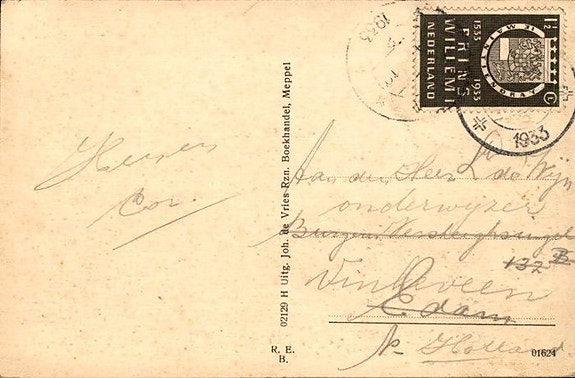 1933
1½ ct
JE MAINTIENDRAY
1533 1933
PRINS
WILLEM I
NEDERLAND
1933
Cor.
Aan den Heer L de Wijn
onderwijzer
132 B
Vinkeveen
Edam
N- Holland
02129 H Uitg. Joh. de Vries Rzn. Boekhandel, Meppel
R. E.
B.
01624